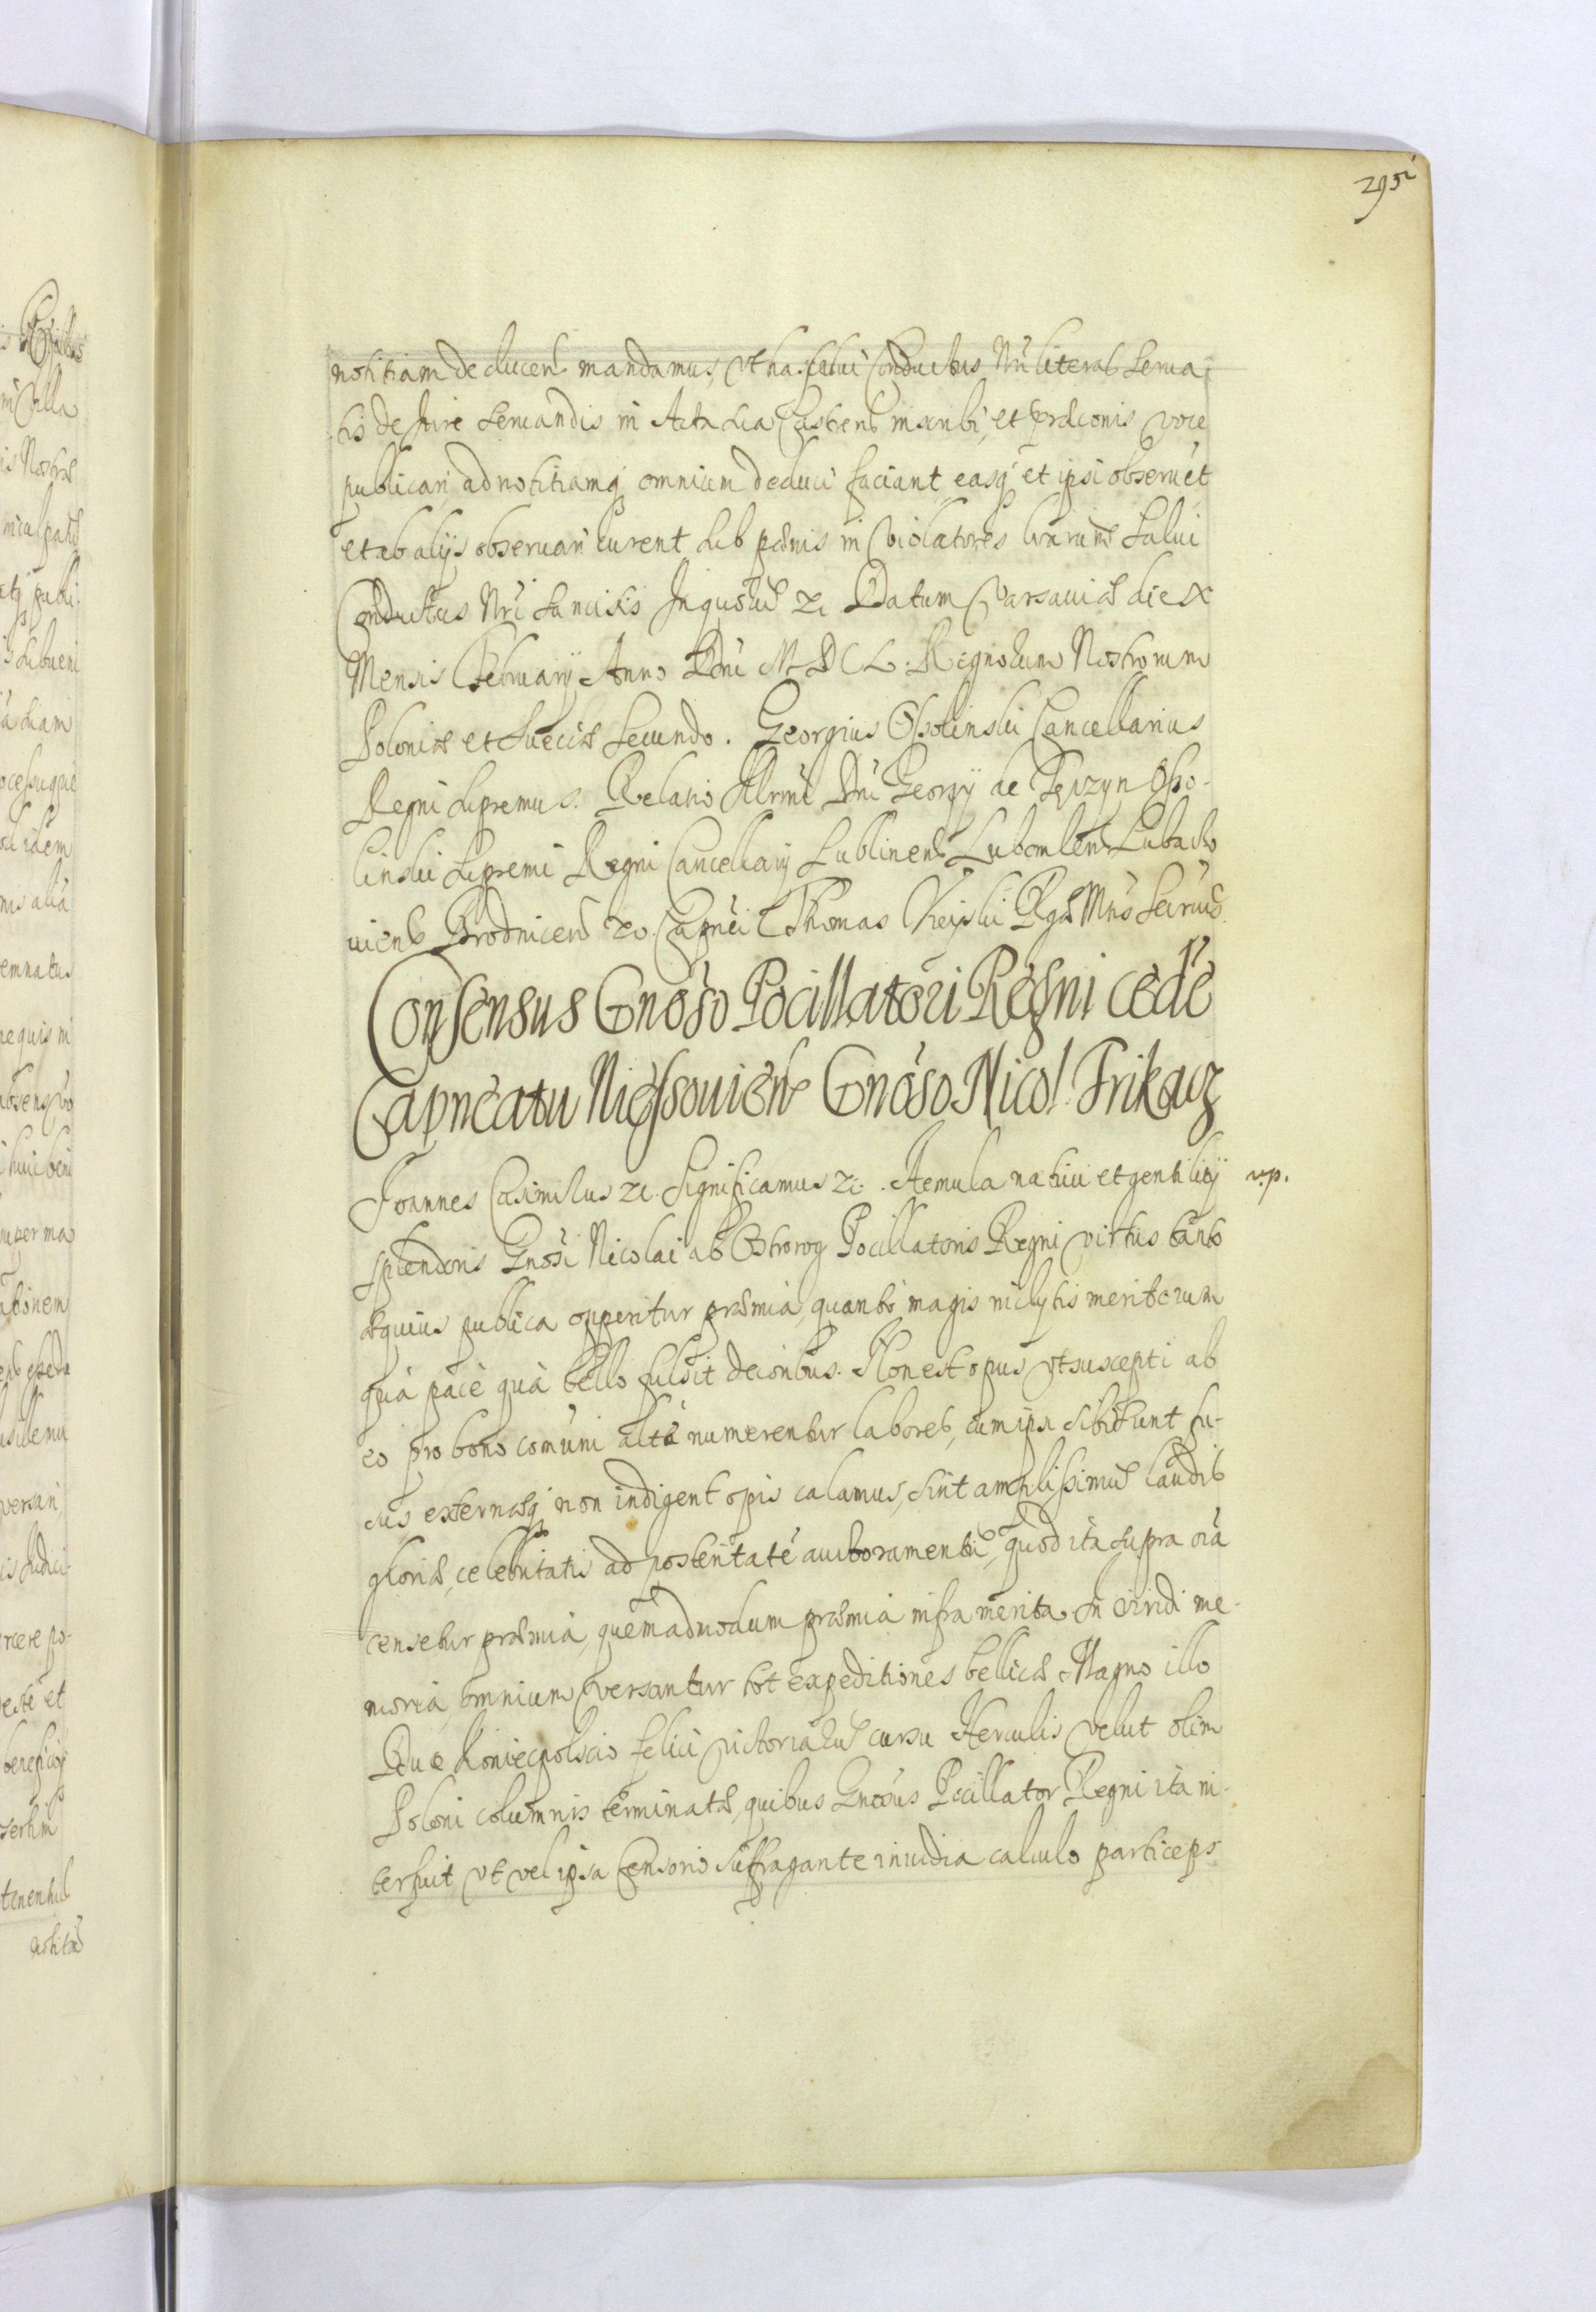 295
notitiam deducen mandamus, Vt has salui Conductus Nri literas serua-
tis de Jure seruandis in Acta sua Castren inscribi, et praeconis voce
publicari, ad notitiamq omnium deduci faciant, easq et ipsi obseruet
et ab alijs obseruari curent sub paenis in Violatores lrarum Salui
Conductus Nri sancitis In quoru etc Datum Varsauiae die X
Mensis February Anno Dni MDCL. Regnorum Nostrorum
Poloniae et Sueciae secundo. Georgius Ossolinski Cancellarius
Regni supremus. Relatio Illrmi Dni Georgy de Tęczyn Osso-
linski supremi Regni Cancellarij Lublinen Lubomlen Lubaczo
uien Brodnicen etc. Capnei Thomas Vieyski Rgae Mtis Secrius.
Consensus Gnoso Pocillatori Regni cedē
Capneatu Nieszouien Gnoso Nicol. Trikacz
Joannes Casimirus etc. Significamus etc. Aemula natiui et gentilitij
splendoris Gnosi Nicolai ab Ostrorog Pocillatoris Regni virtus tanto
aequius publica opperitur praemia, quanto magis inclytis meritorum
quà pace quà bello fulsit decoribus. Non est opus vt suscepti ab
eo pro bono comuni altè numerentur labores, cum ipsi sibi sunt fu-
cus, externaeq non indigent opis calamus, sint amplissimus laudis
gloriae, celebritatis ad posteritatē auctoramentū, quod ita supra oīa
censetur praemia, quemadmodum praemia infra merita. In viridi me-
moria omnium versantur tot expeditiones bellicae Magno illo
Duce Koniecpolscio felici victoriarū cursu Herculis velut olim
Poloni columnis terminatae, quibus Gnosus Pocillator Regni ita in-
terfuit, vt vel ipsa Censorio suffragante inuidia calculo particeps